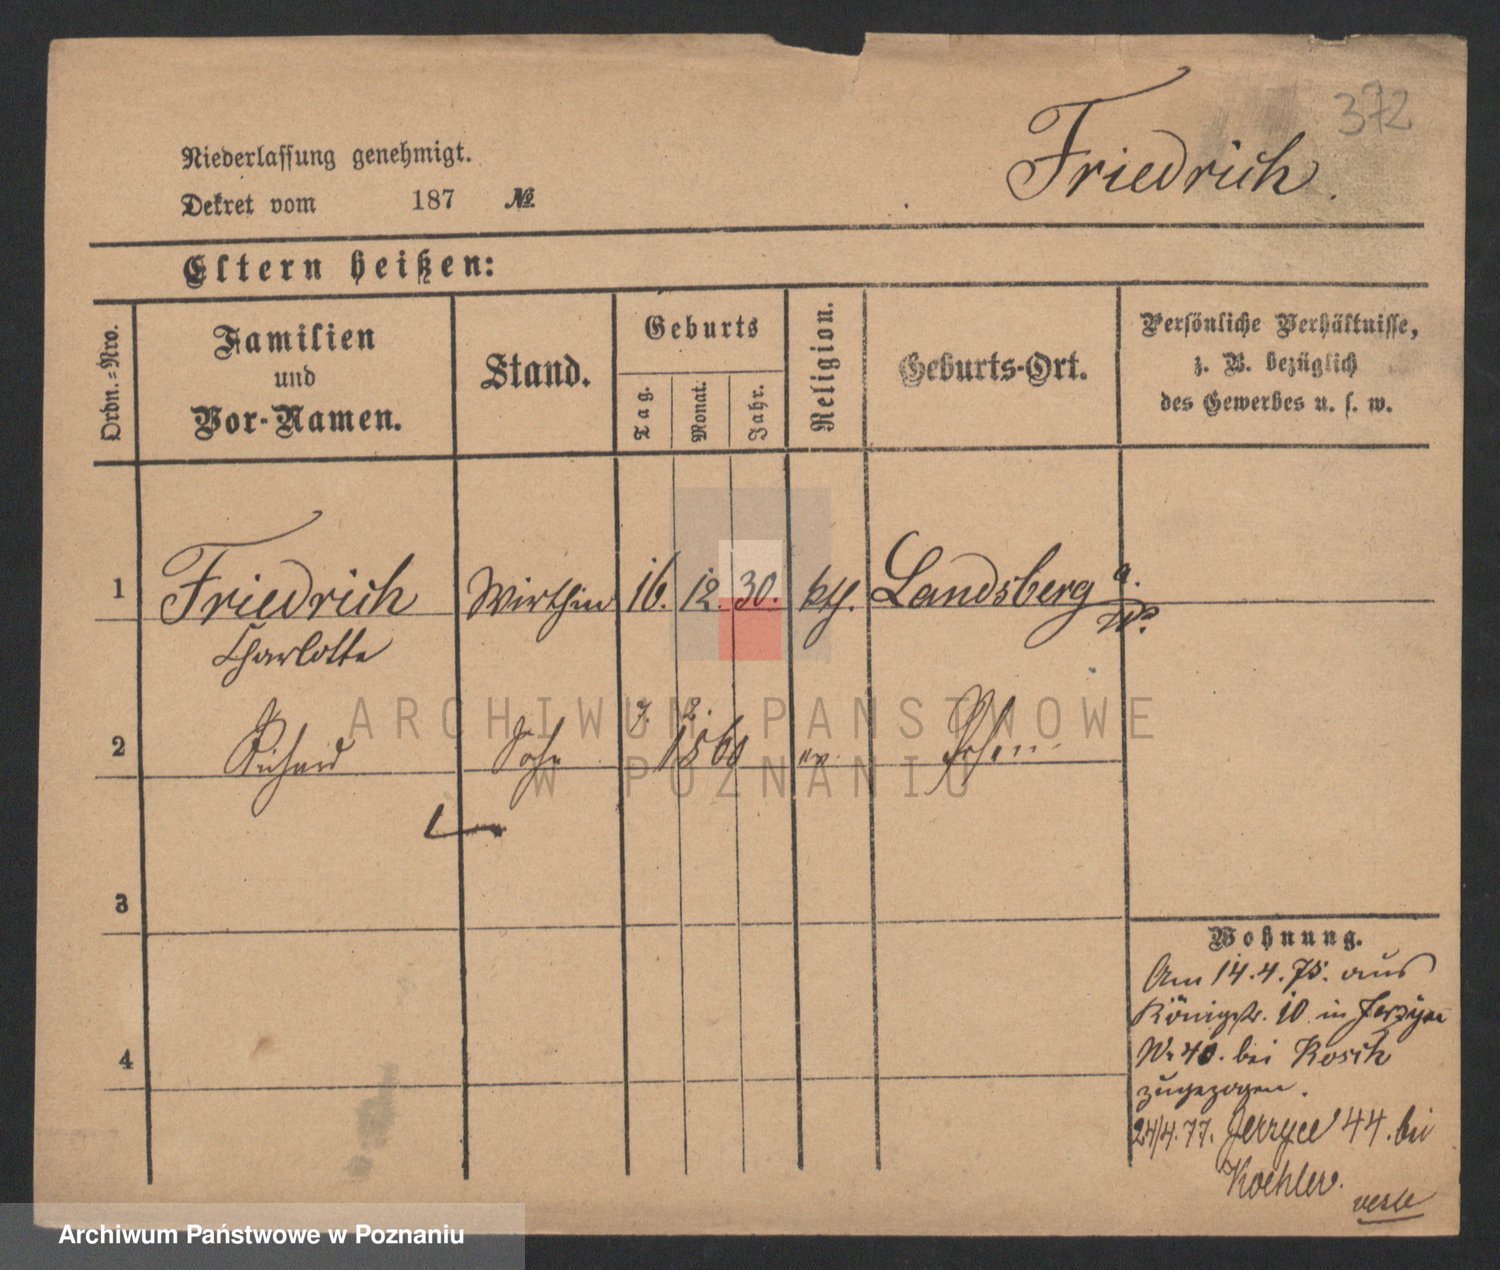 372
Friedrich.
Niederlassung genehmigt.
Dekret vom 187 №
Eltern heißen:
Ordn.-Nro.
Familien
und
Vor-Namen.
Stand.
Geburts
Tag.
Monat.
Jahr.
Religion.
Geburts-Ort.
Persönliche Verhältnisse,
z. B. bezüglich
des Gewerbes u. s. w.
1 Friedrich Wirthin 16. 12. 30. kth. Landsberg a.
W.
Charlotte
7. 2.
2 Richard Sohn 1860 ev.
3
4
Wohnung.
Am 14.4.75. aus
Königstr. 10 in Jerzyce
No 40. bei Rosik
zugezogen.
24/4.77. Jerzyce 44. bei
Koehler.
ARCHIWUM PAŃSTWOWE
W POZNANIU
Archiwum Państwowe w Poznaniu